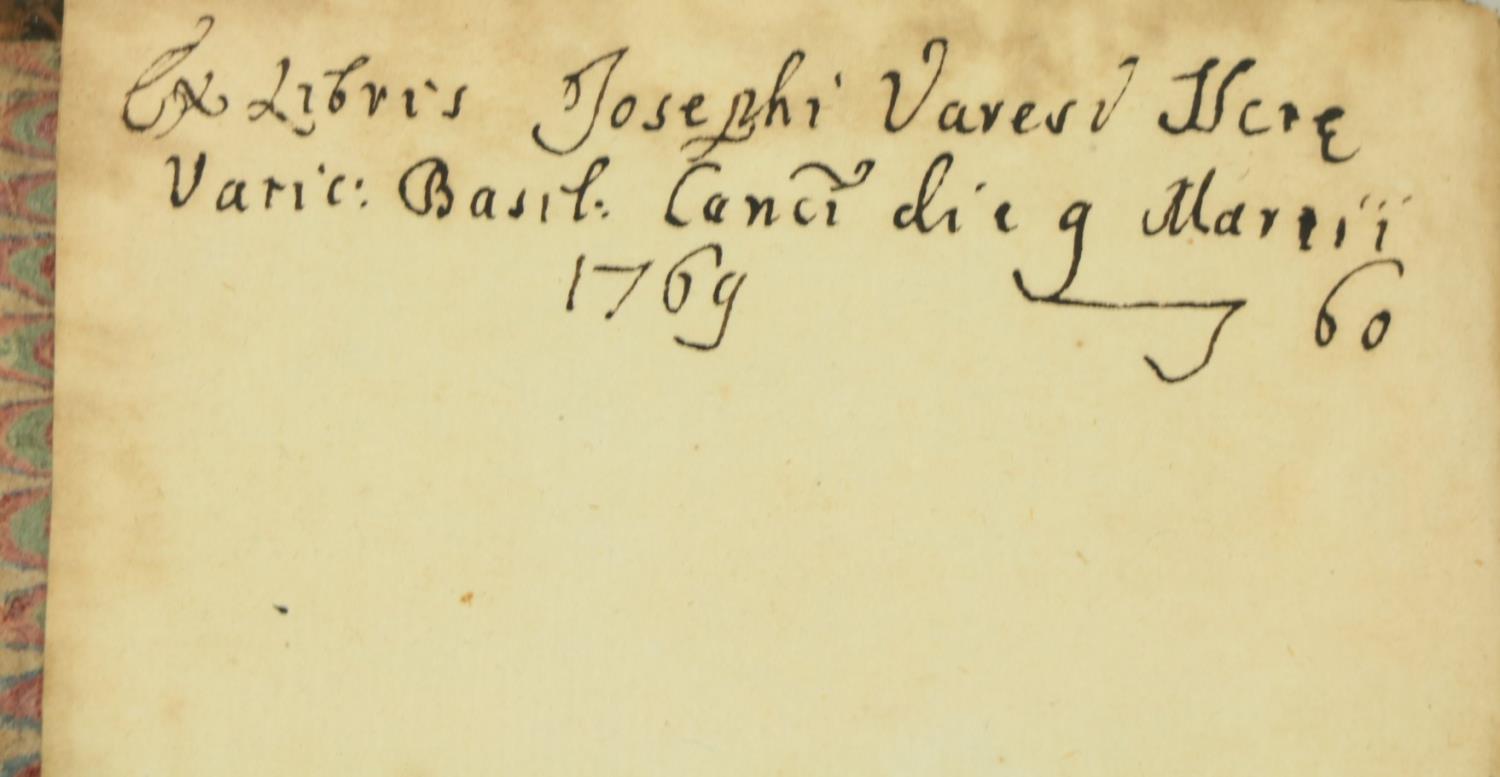 Ex Libris Josephi Varesi
Vatic: Basil. Canci die 9 Martii
1769 60